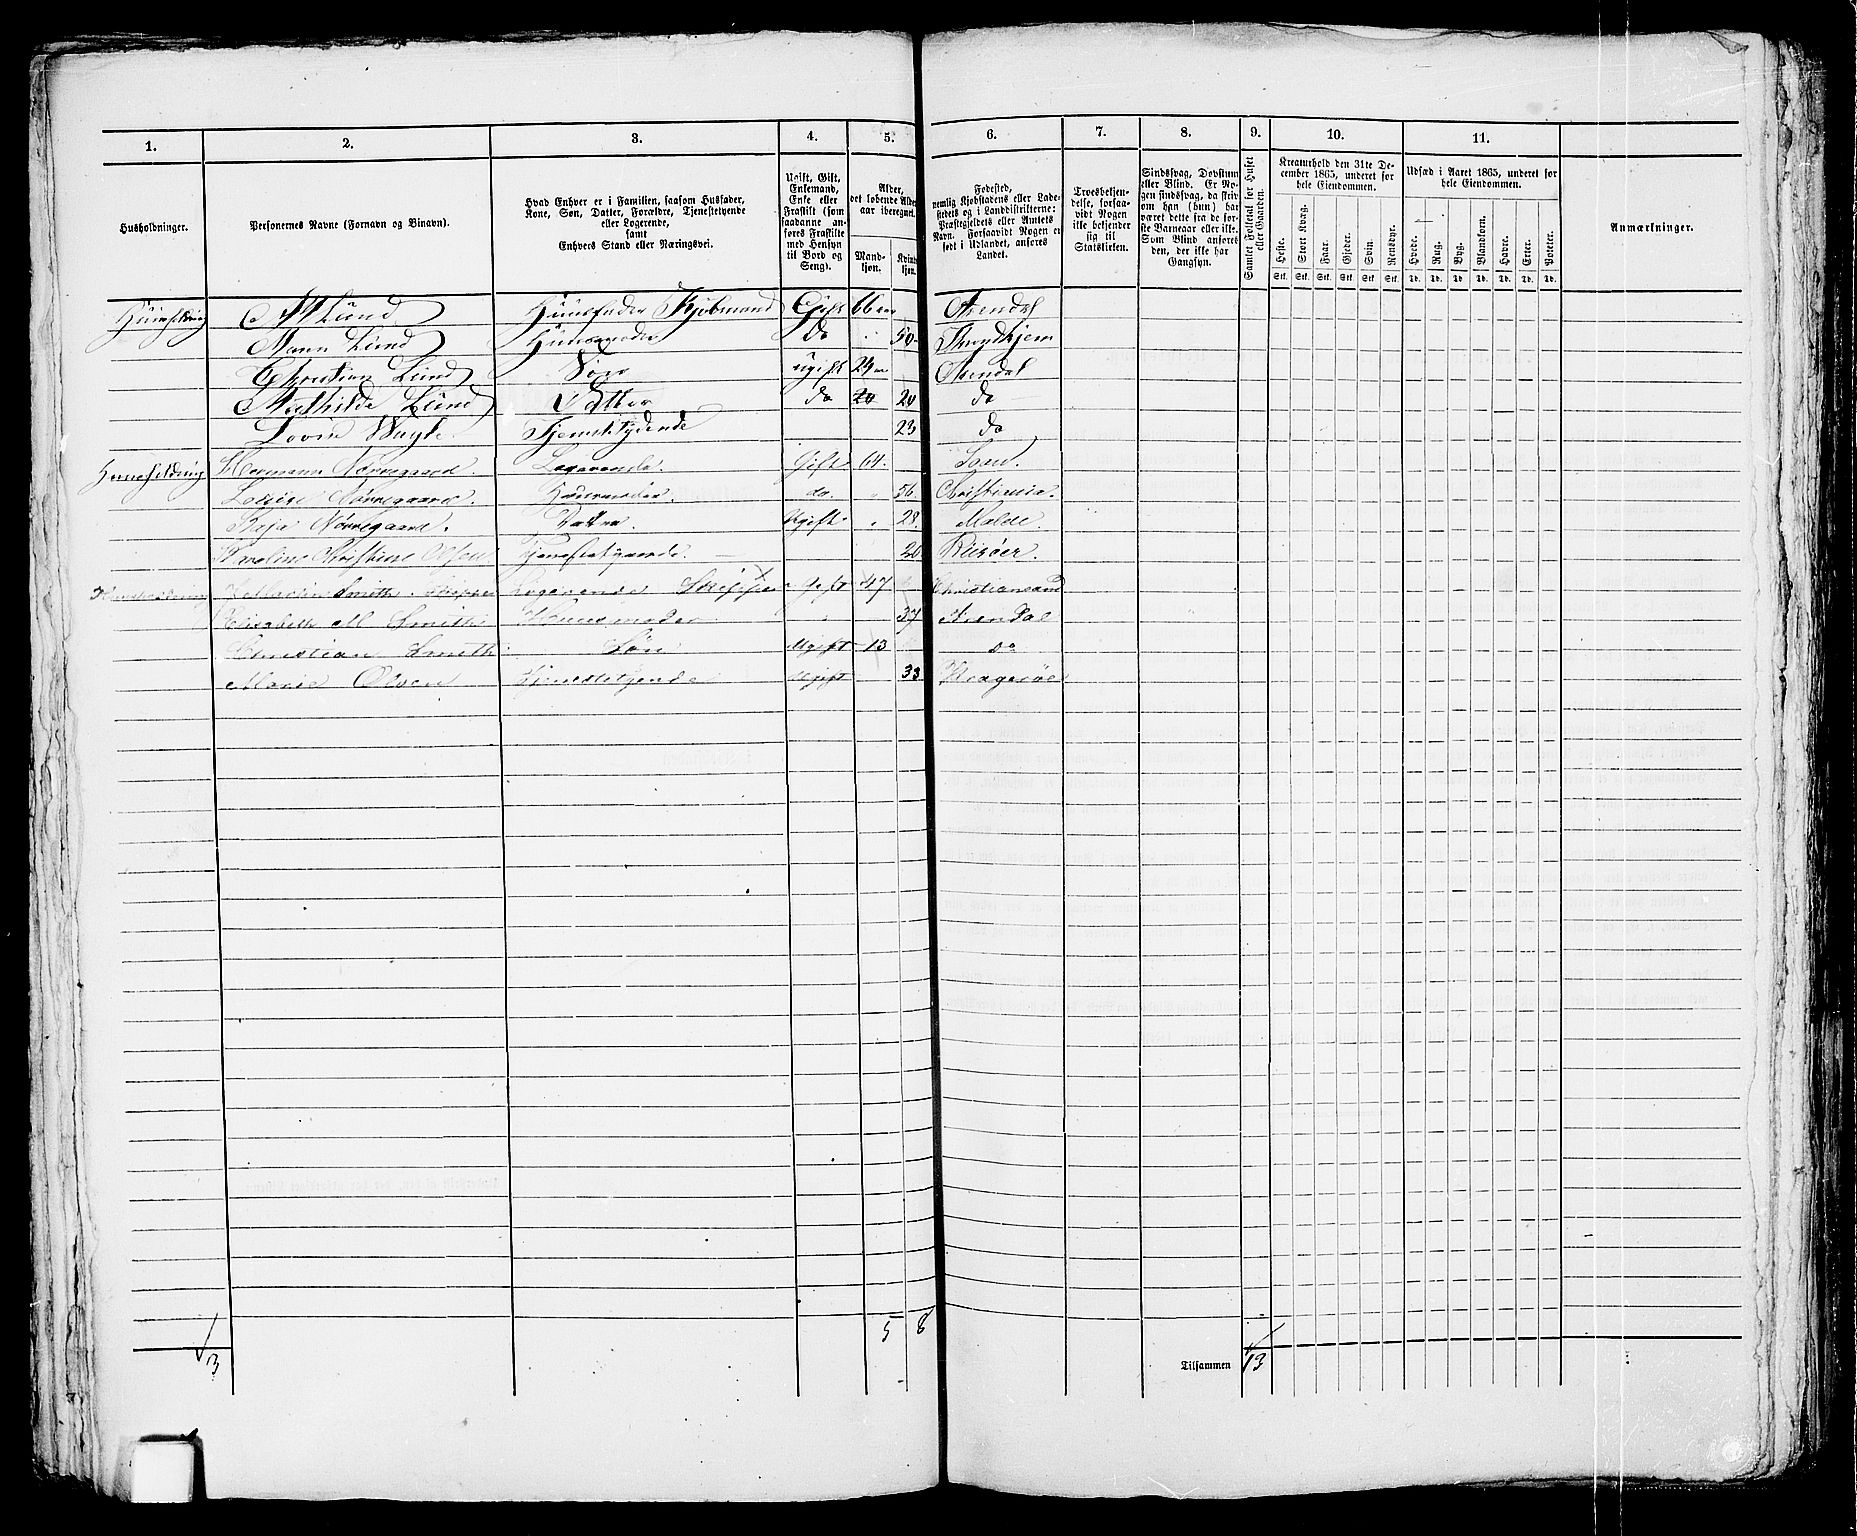 1. 2. 3. 4. 5. 6. 7. 8. 9. 10. 11.
Husholdninger.
Personernes Navne (Fornavn og Binavn).
Hvad Enhver er i Familien, saasom Husfader,
Kone, Søn, Datter, Forældre, Tjenestetyende
eller Logerende,
samt
Enhvers Stand eller Næringsvei.
Ugift, Gift,
Enkemand,
Enke eller
Fraskilt (som
saadanne an-
føres Fraskilte
med Hensyn
til Bord og
Seng).
Alder,
det løbende Alders-
aar iberegnet.
Mand-
kjøn.
Kvind-
kjøn.
Fødested,
nemlig Kjøbstadens eller Lade-
stedets og i Landdistrikterne:
Præstegjeldets eller Amtets
Navn. Forsaavidt Nogen er
født i Udlandet, anføres
Landet.
Troesbekjen-
delse, forsaa-
vidt Nogen
ikke bekjender
sig til
Statskirken.
Sindssvag, Døvstum
eller Blind. Er No-
gen sindssvag, da skriv
om han (hun) har
været dette fra de før-
ste Barneaar eller ikke.
Som Blind anføres
den, der ikke har
Gangsyn.
Samlet Folketal for Huset
eller Gaarden.
Kreaturhold den 31te De-
cember 1865, underet for
hele Eiendommen.
Heste. Stort Kvæg. Faar. Gjeder. Svin. Rensdyr.
Stk. Stk. Stk. Stk. Stk. Stk.
Udsæd i Aaret 1865, underet for
hele Eiendommen.
Hvede. Rug. Byg. Blandkorn. Havre. Erter. Poteter.
Td. Td. Td. Td. Td. Td. Td.
Anmærkninger.
Huusholdning Lund Huusfader Kjøbmand Gift 66 Arendal
Lund Huusmoder do 50 Throndhjem
Christian Lund Søn ugift Arendal
Mathilde Lund Datter do 20 20 do
Tjenestetydende 23 do
Huusholdning Hermann Nørregaard. Logerende. Gift 64.
Louise Nørregaard. Huusmoder. do. " 56 Christiania.
Kaja Nørregaard. Datter. Ugift. " 28. Molde.
Karoline Christine Olsen Tjenestetyende. — 20 Riisøer.
Huusholdning Smith Logerende Skipper Gift 47 Christiansand
Elisabeth M Smith Huusmoder " 37 Arendal
Christian Smith Søn Ugift 13 do
Marie Olsen Tjenestetyende Ugift 33 Kragerøe
5 8
3
Tilsammen 13